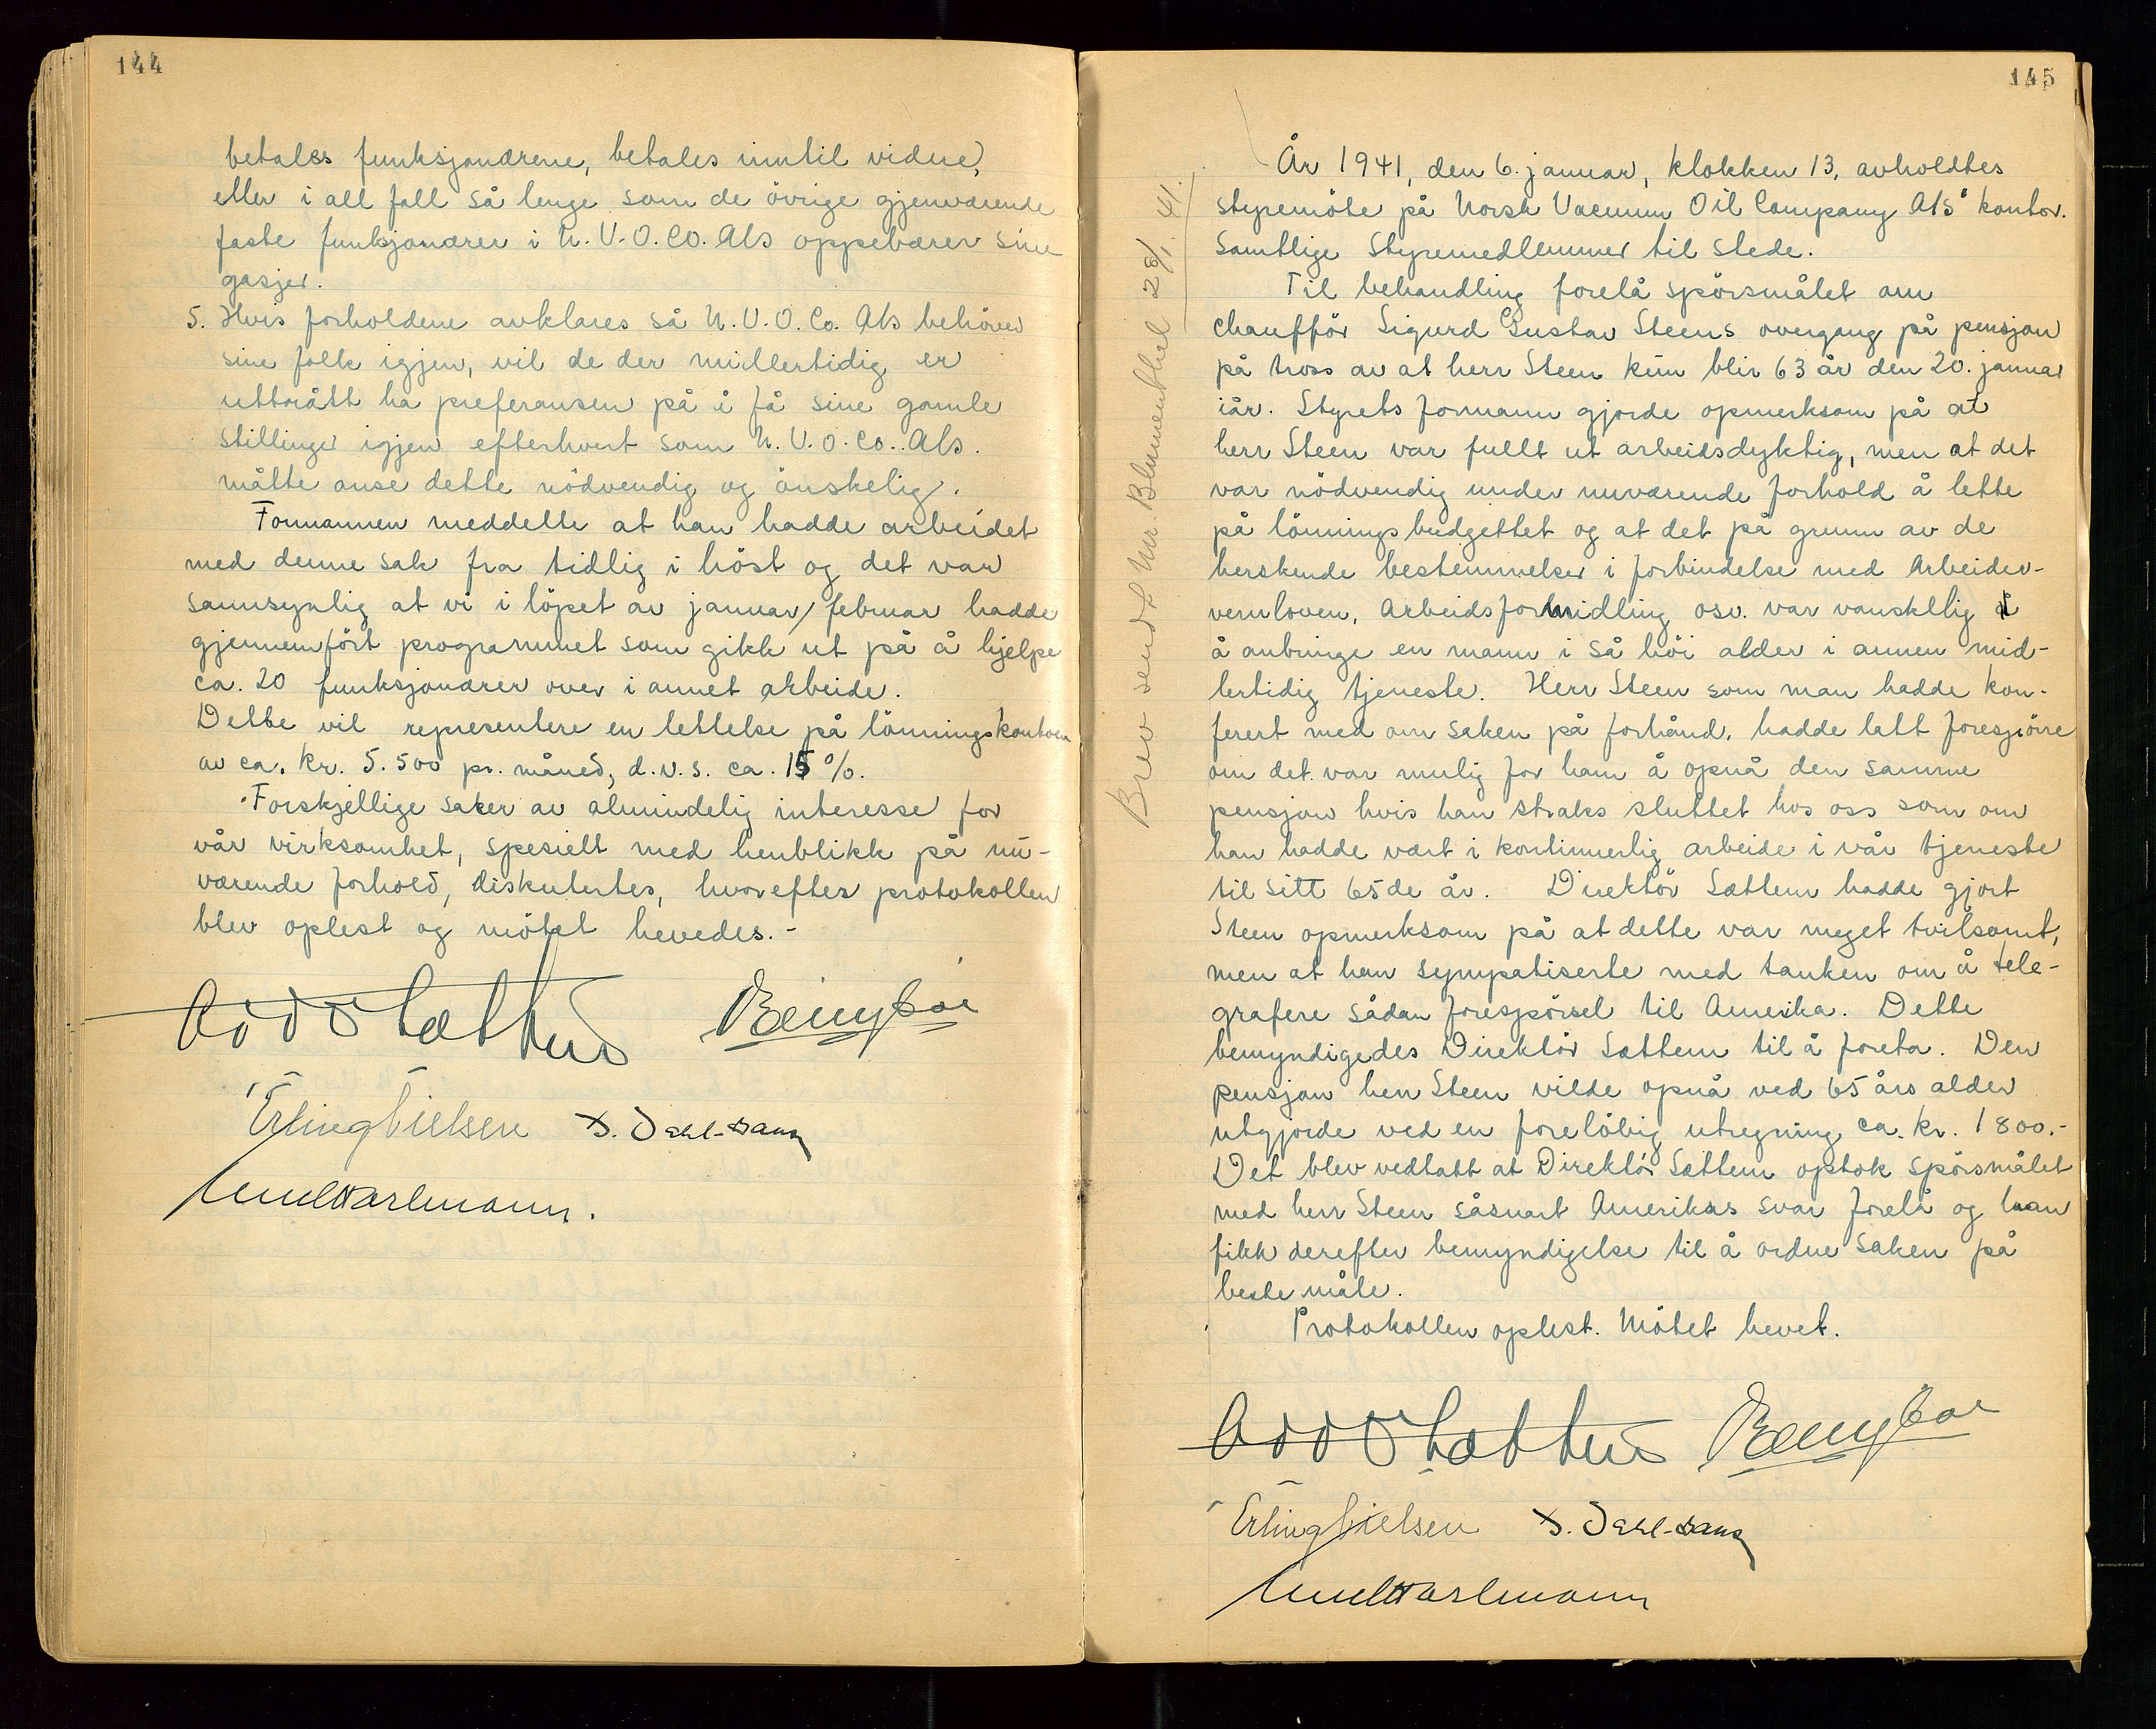 144
betales funksjonærene, betales inntil videre,
eller i all fall så lenge som de övrige gjenværende
faste funksjonærer i N.V.O.Co. A/s oppebærer sine
gasjer.
5. Hvis forholdene avklares så N.V.O.Co. A/s behöver
sine folk igjen, vil de der midlertidig er
uttrått ha preferansen på å få sine gamle
stillinger igjen efterhvert som N.V.O.Co. A/s.
måtte anse dette nödvendig og önskelig.
Formannen meddelte at han hadde arbeidet
med denne sak fra tidlig i höst og det var
sannsynlig at vi i löpet av januar/februar hadde
gjennemfört programmet som gikk ut på å hjelpe
ca. 20 funksjonærer over i annet arbeide.
Dette vil representere en lettelse på lönningskontoen
av ca. kr. 5.500 pr. måned, d.v.s. ca. 15%.
Forskjellige saker av almindelig interesse for
vår virksomhet, spesielt med henblikk på nu-
værende forhold, diskutertes, hvorefter protokollen
blev oplest og mötet hevedes.-
Odd Sættem
Erling Nielsen
145
Brev sendt hr. Blumenthal 28/1.41.
År 1941, den 6. januar, klokken 13, avholdtes
styremöte på Norsk Vacuum Oil Company A/S' kontor.
Samtlige styremedlemmer til stede.
Til behandling forelå spörsmålet om
chafför Sigurd Gustav Steens overgang på pensjon
på tross av at herr Steen kun blir 63 år den 20. januar
iår. Styrets formann gjorde opmerksom på at
herr Steen var fullt ut arbeidsdyktig, men at det
var nödvendig under nuværende forhold å lette
på lönningsbudgettet og at det på grunn av de
herskende bestemmelser i forbindelse med Arbeider-
vernloven, Arbeidsformidling osv. var vanskelig
å anbringe en mann i så höi alder i annen mid-
lertidig tjeneste. Herr Steen som man hadde kon-
ferert med om saken på forhånd, hadde latt forespörre
om det var mulig for ham å opnå den samme
pensjon hvis han straks sluttet hos oss som om
han hadde vært i kontinuerlig arbeide i vår tjeneste
til sitt 65de år. Direktör Sættem hadde gjort
Steen opmerksom på at dette var meget tvilsomt,
men at han sympatiserte med tanken om å tele-
grafere sådan forespörsel til Amerika. Dette
bemyndigedes Direktör Sættem til å foreta. Den
pensjon herr Steen vilde opnå ved 65 års alder
utgjorde ved en forelöbig utregning ca. kr. 1800.-
Det blev vedtatt at Direktör Sættem optok spörsmålet
med herr Steen såsnart Amerikas svar forelå og han
fikk derefter bemyndigelse til å ordne saken på
beste måte.
Protokollen oplest. Mötet hevet.
Odd Sættem
Erling Nielsen